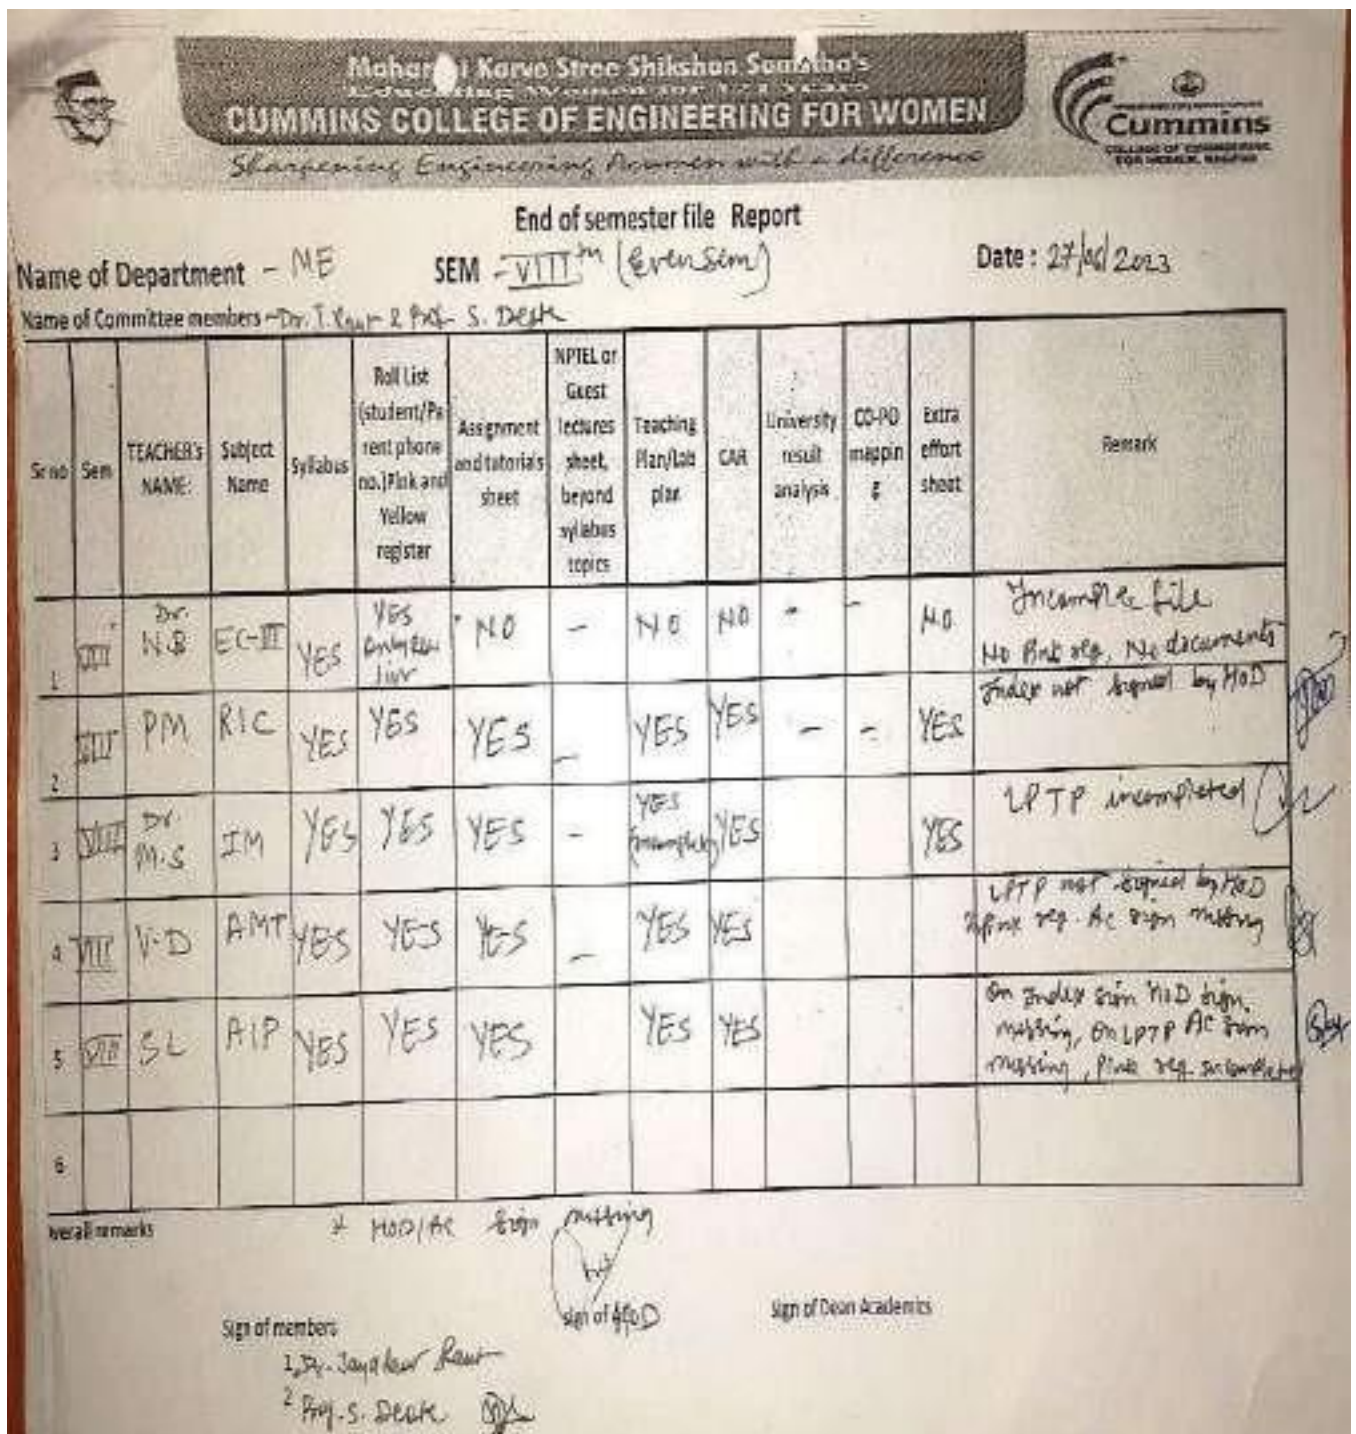 Maharshi Karve Stree Shikshan Samstha's
Educating Women for 121 Years
CUMMINS COLLEGE OF ENGINEERING FOR WOMEN
Sharpening Engineering Acumen with a difference
Cummins
COLLEGE OF ENGINEERING
FOR WOMEN, NAGPUR
End of semester file Report
Name of Department - ME SEM - VIII th (Even Sem) Date : 27/06/2023
Name of Committee members - Dr. J. Raut & Prof. S. Deote
Sr no Sem TEACHER's NAME: Subject Name Syllabus Roll List (student/Parent phone no.)Pink and Yellow register Assignment and tutorials sheet NPTEL or Guest lectures sheet, beyond syllabus topics Teaching Plan/Lab plan CAR University result analysis CO-PO mapping Extra effort sheet Remark
1 VIII Dr. N.B EC-III YES YES NO - NO NO - - NO Incomplete file No Pink reg, No documents
2 VIII PM RIC YES YES YES - YES YES - - YES Index not signed by HoD
3 VIII Dr. M.S IM YES YES YES - YES (Incomplete) YES YES LPTP incompleted
4 VIII V.D AMT YES YES YES - YES YES LPTP not signed by HoD Pink reg. AC sign missing
5 VIII SL AIP YES YES YES YES YES On Index sign HoD sign missing, On LPTP AC sign missing, Pink reg. incomplete
6
verall remarks * HOD/AC sign missing
Sign of members sign of HoD sign of Dean Academics
1, Dr. Jayakeer Raut
2 Prof. S. Deote